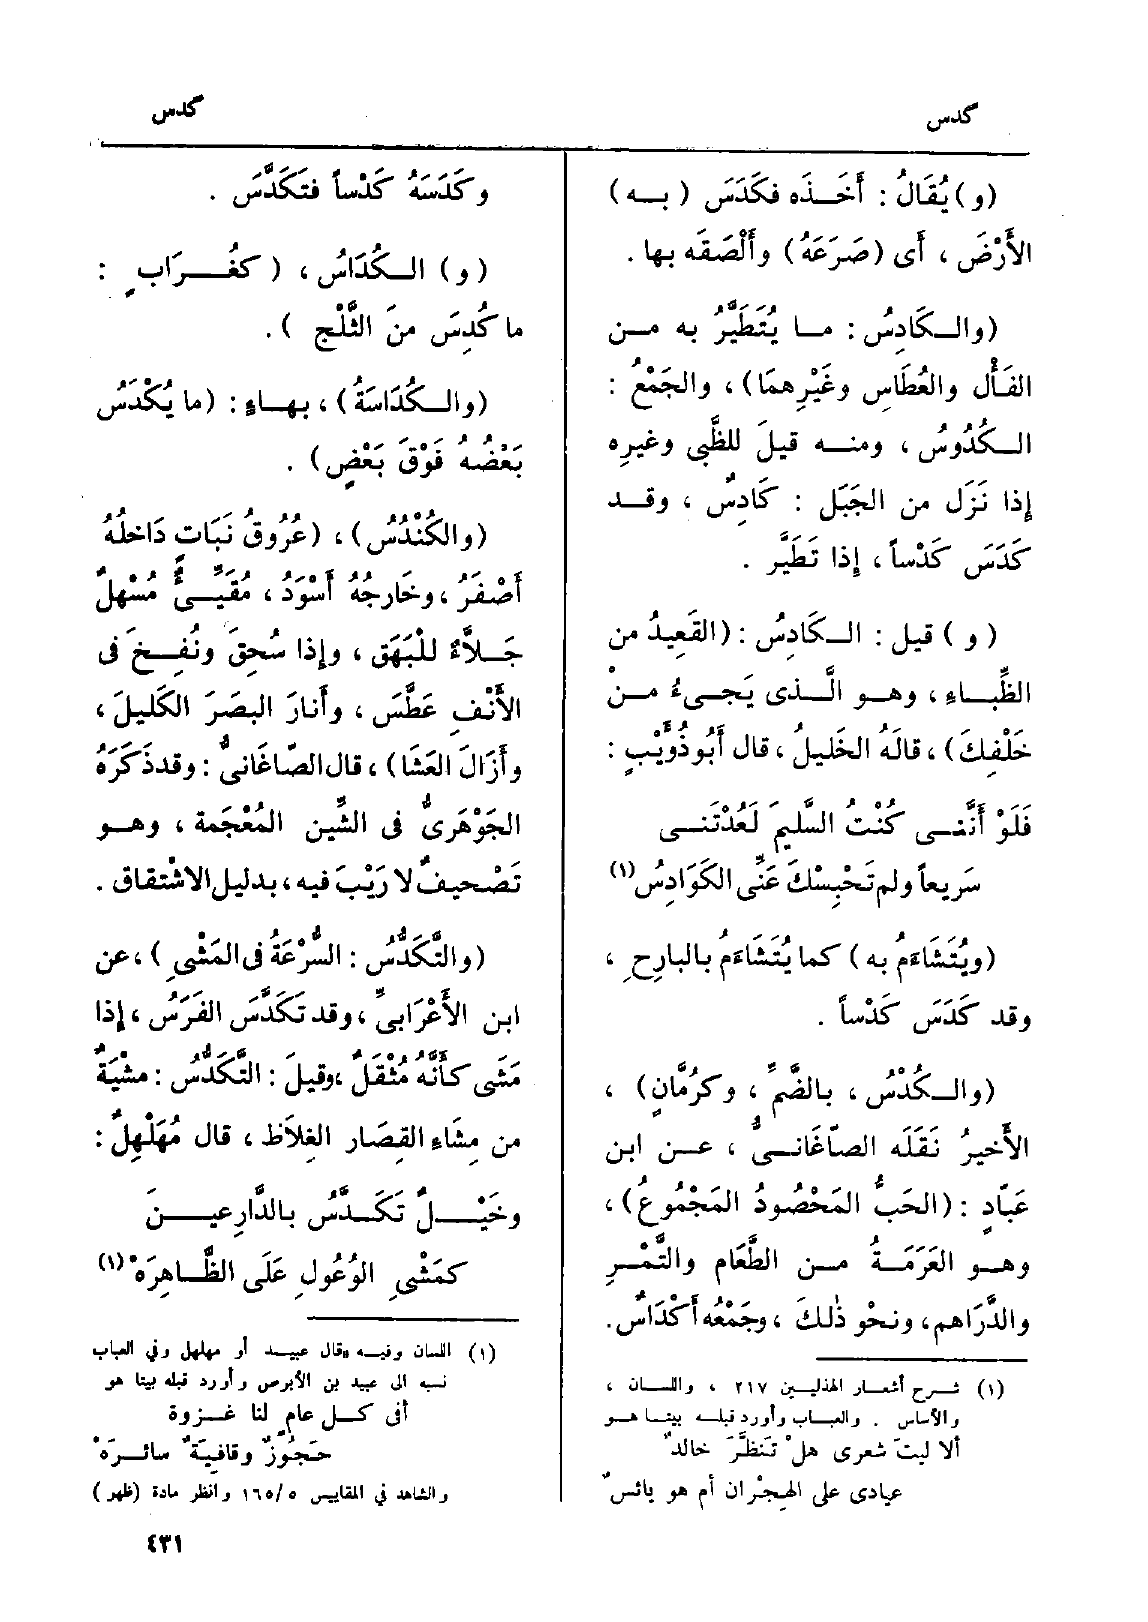 كدس
كدس
(و) يُقَالُ : أَخَذَه فكَدَسَ ( بـه )
الأَرْضَ ، أى (صَرَعَهُ) وأَلْصَقَه بها .
(والـكَادِسُ : مـا يُتَطَيَّرُ به مـن
الفَأْلِ والعُطَاسِ وغَيْرِهمَا) ، والجَمْعُ :
الـكُدُوسُ ، ومنـه قيلَ للظَّبى وغيرِه
إذا نَزَلَ من الجَبَل : كَادِسٌ ، وقـد
كَدَسَ كَدْساً ، إذا تَطَيَّر .
( و ) قيل : الـكَادِسُ : (القَعِيدُ من
الظِّبـاءِ ، وهـو الَّـذى يَجىءُ مـنْ
خَلْفِكَ) ، قالَهُ الخَليلُ ، قال أَبُو ذُوَيْبٍ :
فَلَوْ أَنَّنـى كُنْتُ السَّليمَ لَعُدْتَنـى
سَريعاً ولم تَحْبِسْكَ عَنِّى الكَوَادِسُ (١)
(ويُتَشَاءَمُ به) كما يُتَشَاءَمُ بالبارِحِ ،
وقد كَدَسَ كَدْساً .
(والـكُدْسُ ، بالضَّمِّ ، وكرُمَّانٍ) ،
الأَخيرُ نَقَلَه الصّاغَانـىُّ ، عـن ابن
عَبّادٍ : (الحَبُّ المَحْصُودُ المَجْمُوعُ) ،
وهـو العَرَمَةُ مـن الطَّعَامِ والتَّمْرِ
والدَّرَاهم ، ونحْو ذٰلكَ ، وجَمْعُه أَكْدَاسٌ .
(١) شـرح أشعـار الهذليـين ٢١٧ ، واللسـان ،
والأساس . والعبـاب وأورد قبلـه بيتـا هـو
ألا ليتَ شعرى هلْ تَنَظَّرَ خالدٌ
عيادى على الهِجْران أم هو يائسٌ
وكَدَسَهُ كَدْساً فتَكَدَّسَ .
(و) الـكُدَاسُ ، ( كغُـرَابٍ :
ما كُدِسَ منَ الثَّلْجِ ) .
(والـكُدَاسَةُ) ، بهـاءٍ : (ما يُكْدَسُ
بَعْضُهُ فَوْقَ بَعْضٍ) .
(والكُنْدُسُ) ، (عُرُوقُ نَبَاتٍ دَاخلُهُ
أَصْفَرُ ، وخَارجُهُ أَسْوَدُ ، مُقَيِّـئٌ مُسْهلٌ
جَـلاَّءٌ للْبَهَق ، وإذا سُحِقَ ونُفِـخَ فى
الأَنْفِ عَطَّسَ ، وأَنارَ البَصَرَ الكَليلَ ،
وأَزَالَ العَشَا) ، قال الصّاغَانىُّ : وقد ذَكَرَهُ
الجَوْهَرىُّ فى الشِّينِ المُعْجَمة ، وهـو
تَصْحيفٌ لا رَيْبَ فيه ، بدليل الاشْتقاق .
(والتَّكَدُّسُ : السُّرْعَةُ فى المَشْىِ ) ، عن
ابن الأَعْرَابىِّ ، وقد تَكَدَّسَ الفَرَسُ ، إذا
مَشَى كأَنَّهُ مُثْقَلٌ ، وقيلَ : التَّكَدُّسُ : مشْيَةٌ
من مِشَاءِ القِصَارِ الغِلاَظ ، قال مُهَلْهِلٌ :
وخَيْـلٌ تَكَـدَّسُ بالدَّارِعيـن
كمَشْىِ الوُعُولِ عَلَى الظَّـاهرَهْ (١)
(١) اللسان وفيـه «قال عبيـد أو مهلهل وفي العباب
نسبه الى عبيد بن الأبرص وأورد قبله بيتا هو
أفى كـل عامٍ لنا غـزوة
حَجُوزٌ وقافيَةٌ سائـرَهْ
والشاهد في المقاييس ٥/١٦٥ وانظر مادة (ظهر)
٤٣١